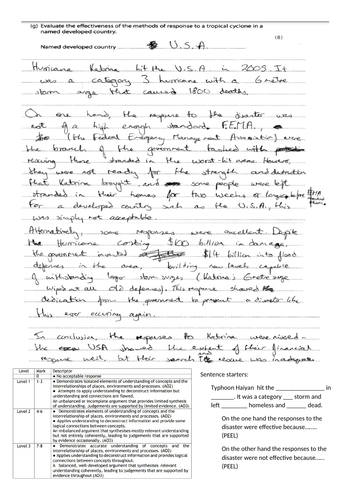 (g) Evaluate the effectiveness of the methods of response to a tropical cyclone in a
named developed country.
(8)
Named developed country U.S.A.
Hurricane Katrina hit the U.S.A. in 2005. It
was a category 3 hurricane with a 6 metre
storm surge that caused 1800 deaths.
On one hand, the response to the disaster was
not of a high enough standard. F.E.M.A.,
(the Federal Emergency Management Association) were
the branch of the government tasked with
rescuing those stranded in the worst-hit areas. However,
they were not ready for the strength and destruction
that Katrina brought and some people were left
stranded in their homes for two weeks or longer before
For a developed country such as the U.S.A, this
was simply not acceptable.
Alternatively, some responses were excellent. Despite
the Hurricane costing $100 billion in damage,
the government invested $14 billion into flood
defenses in the area, building new levels capable
of withstanding larger storm surges (Katrina's 6 metre surge
wiped out all old defenses). This response showed the
dedication from the government to prevent a disaster like
this ever occuring again.
In conclusion, the responses to Katrina were mixed -
the USA showed the extent of their financial
response well, but their search and rescue was inadequate.
Level Mark Descriptor
0 ● No acceptable response
Level 1 1-3 ● Demonstrates isolated elements of understanding of concepts and the
interrelationship of places, environments and processes. (AO2)
● Attempts to apply understanding to deconstruct information but
understanding and connections are flawed.
An unbalanced or incomplete argument that provides limited synthesis
of understanding. Judgements are supported by limited evidence. (AO3)
Level 2 4-6 ● Demonstrates elements of understanding of concepts and the
interrelationship of places, environments and processes. (AO2)
● Applies understanding to deconstruct information and provide some
logical connections between concepts.
An imbalanced argument that synthesises mostly relevant understanding
but not entirely coherently, leading to judgements that are supported by
evidence occasionally. (AO3)
Level 3 7-8 ● Demonstrates accurate understanding of concepts and the
interrelationship of places, environments and processes. (AO2)
● Applies understanding to deconstruct information and provide logical
connections between concepts throughout.
A balanced, well-developed argument that synthesises relevant
understanding coherently, leading to judgements that are supported by
evidence throughout (AO3)
Sentence starters:
Typhoon Haiyan hit the ____________ in
____________. It was a category ___ storm and
left ________ homeless and _______ dead.
On the one hand the responses to the
disaster were effective because.......
(PEEL)
On the other hand the responses to the
disaster were not effective because.....
(PEEL)